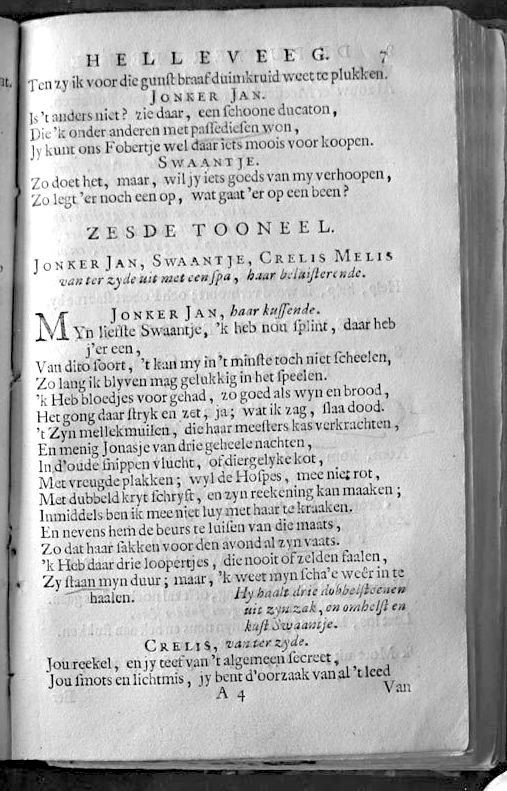 HELLEVEEG. 7
Ten zy ik voor die gunſt braaf duimkruid weet te plukken.
JONKER JAN.
Is 't anders niet? zie daar, een ſchoone ducaton,
Die 'k onder anderen met paſſedieſen won,
Jy kunt ons Fobertje wel daar iets moois voor koopen.
SWAANTJE.
Zo doet het, maar, wil jy iets goeds van my verhoopen,
Zo legt 'er noch een op, wat gaat 'er op een been?
ZESDE TOONEEL.
JONKER JAN, SWAANTJE, CRELIS MELIS
van ter zyde uit met een ſpa, haar beluiſterende.
JONKER JAN, haar kuſſende.
MYn liefſte Swaantje, 'k heb nou ſplint, daar heb
j'er een,
Van dito ſoort, 't kan my in 't minſte toch niet ſcheelen,
Zo lang ik blyven mag gelukkig in het ſpeelen.
'k Heb bloedjes voor gehad, zo goed als wyn en brood,
Het gong daar ſtryk en zet, ja; wat ik zag, ſlaa dood.
't Zyn mellekmuilen, die haar meeſters kas verkrachten,
En menig Jonasje van drie geheele nachten,
In d'oude ſnippen vlucht, of diergelyke kot,
Met vreugde plakken; wyl de Hoſpes, mee niet rot,
Met dubbeld kryt ſchryft, en zyn reekening kan maaken;
Inmiddels ben ik mee niet luy met haar te kraaken.
En nevens hem de beurs te luiſen van die maats,
Zo dat haar ſakken voor den avond al zyn vaats.
'k Heb daar drie loopertjes, die nooit of zelden faalen,
Zy ſtaan myn duur; maar, 'k weet myn ſcha'e weêr in te
haalen. Hy haalt drie dobbelſteenen
uit zyn zak, en omhelſt en
kuſt Swaantje.
CRELIS, van ter zyde.
Jou reekel, en jy teef van 't algemeen ſecreet,
Jou ſmots en lichtmis, jy bent d'oorzaak van al 't leed
A 4 Van